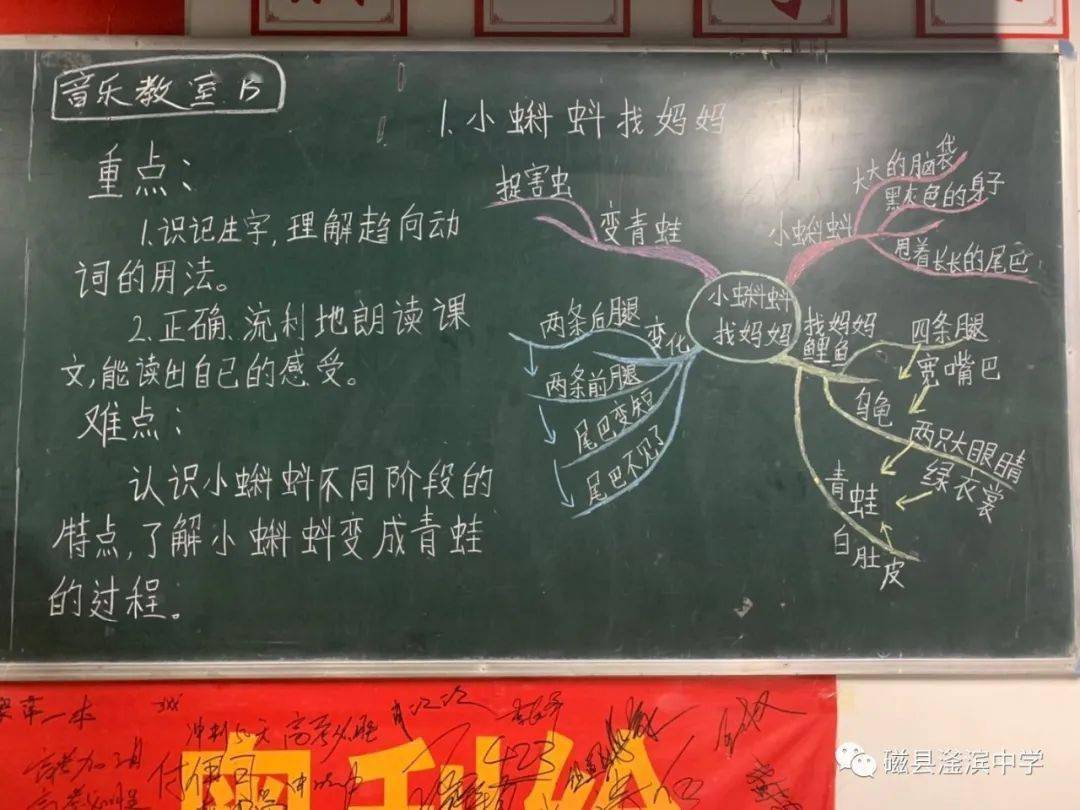 音乐教室 B
1.小蝌蚪找妈妈
重点：
1.识记生字,理解趋向动
词的用法。
2.正确、流利地朗读课
文,能读出自己的感受。
难点：
认识小蝌蚪不同阶段的
特点,了解小蝌蚪变成青蛙
的过程。
小蝌蚪
找妈妈
小蝌蚪
大大的脑袋
黑灰色的身子
甩着长长的尾巴
找妈妈
鲤鱼
四条腿
宽嘴巴
乌龟
两只大眼睛
绿衣裳
青蛙
白肚皮
变化
两条后腿
两条前腿
尾巴变短
尾巴不见了
变青蛙
捉害虫
冲刺
高考必胜
423
磁县滏滨中学